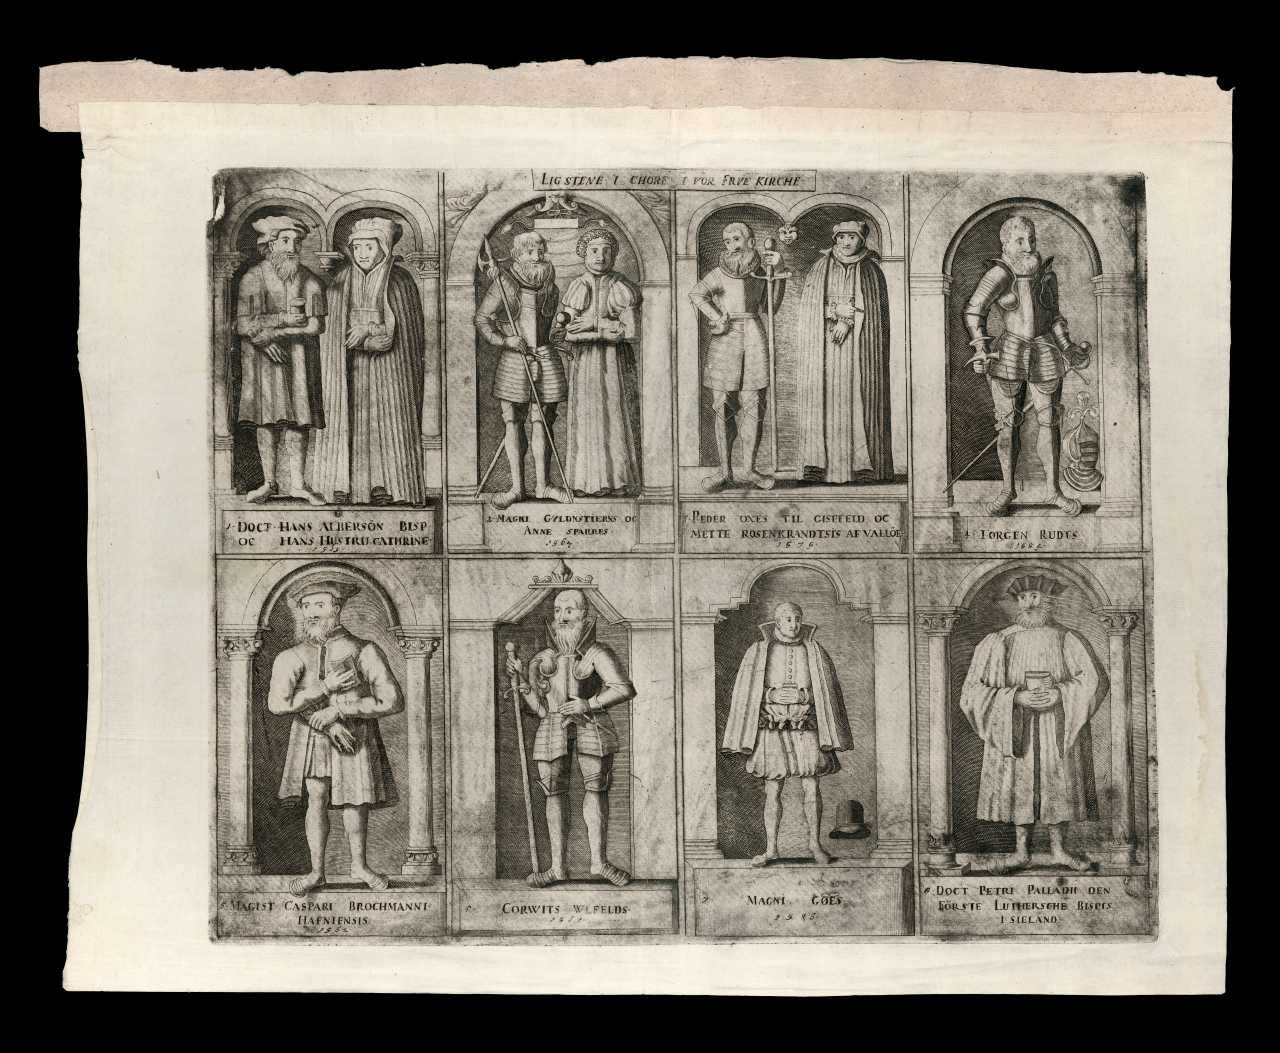 LIGSTENE I CHORE I VOR FRVE KIRCHE
1. DOCT. HANS ALBERSÖN BISP
OC HANS HUSTRU CATHRINE
2. MAGNI GYLDNSTIERNS OC
ANNE SPARRES.
PEDER OXES TIL GISEFELD OC
METTE ROSENKRANDTSIS AF VALLÖE
1575.
4. IORGEN RUDTS
5. MAGIST CASPARI BROCHMANNI
HAFNIENSIS.
CORWITS WLFELDS.
7. MAGNI GÖES.
8. DOCT PETRI PALLADII DEN
FÖRSTE LUTHERSCHE BISPIS
I SIELAND.